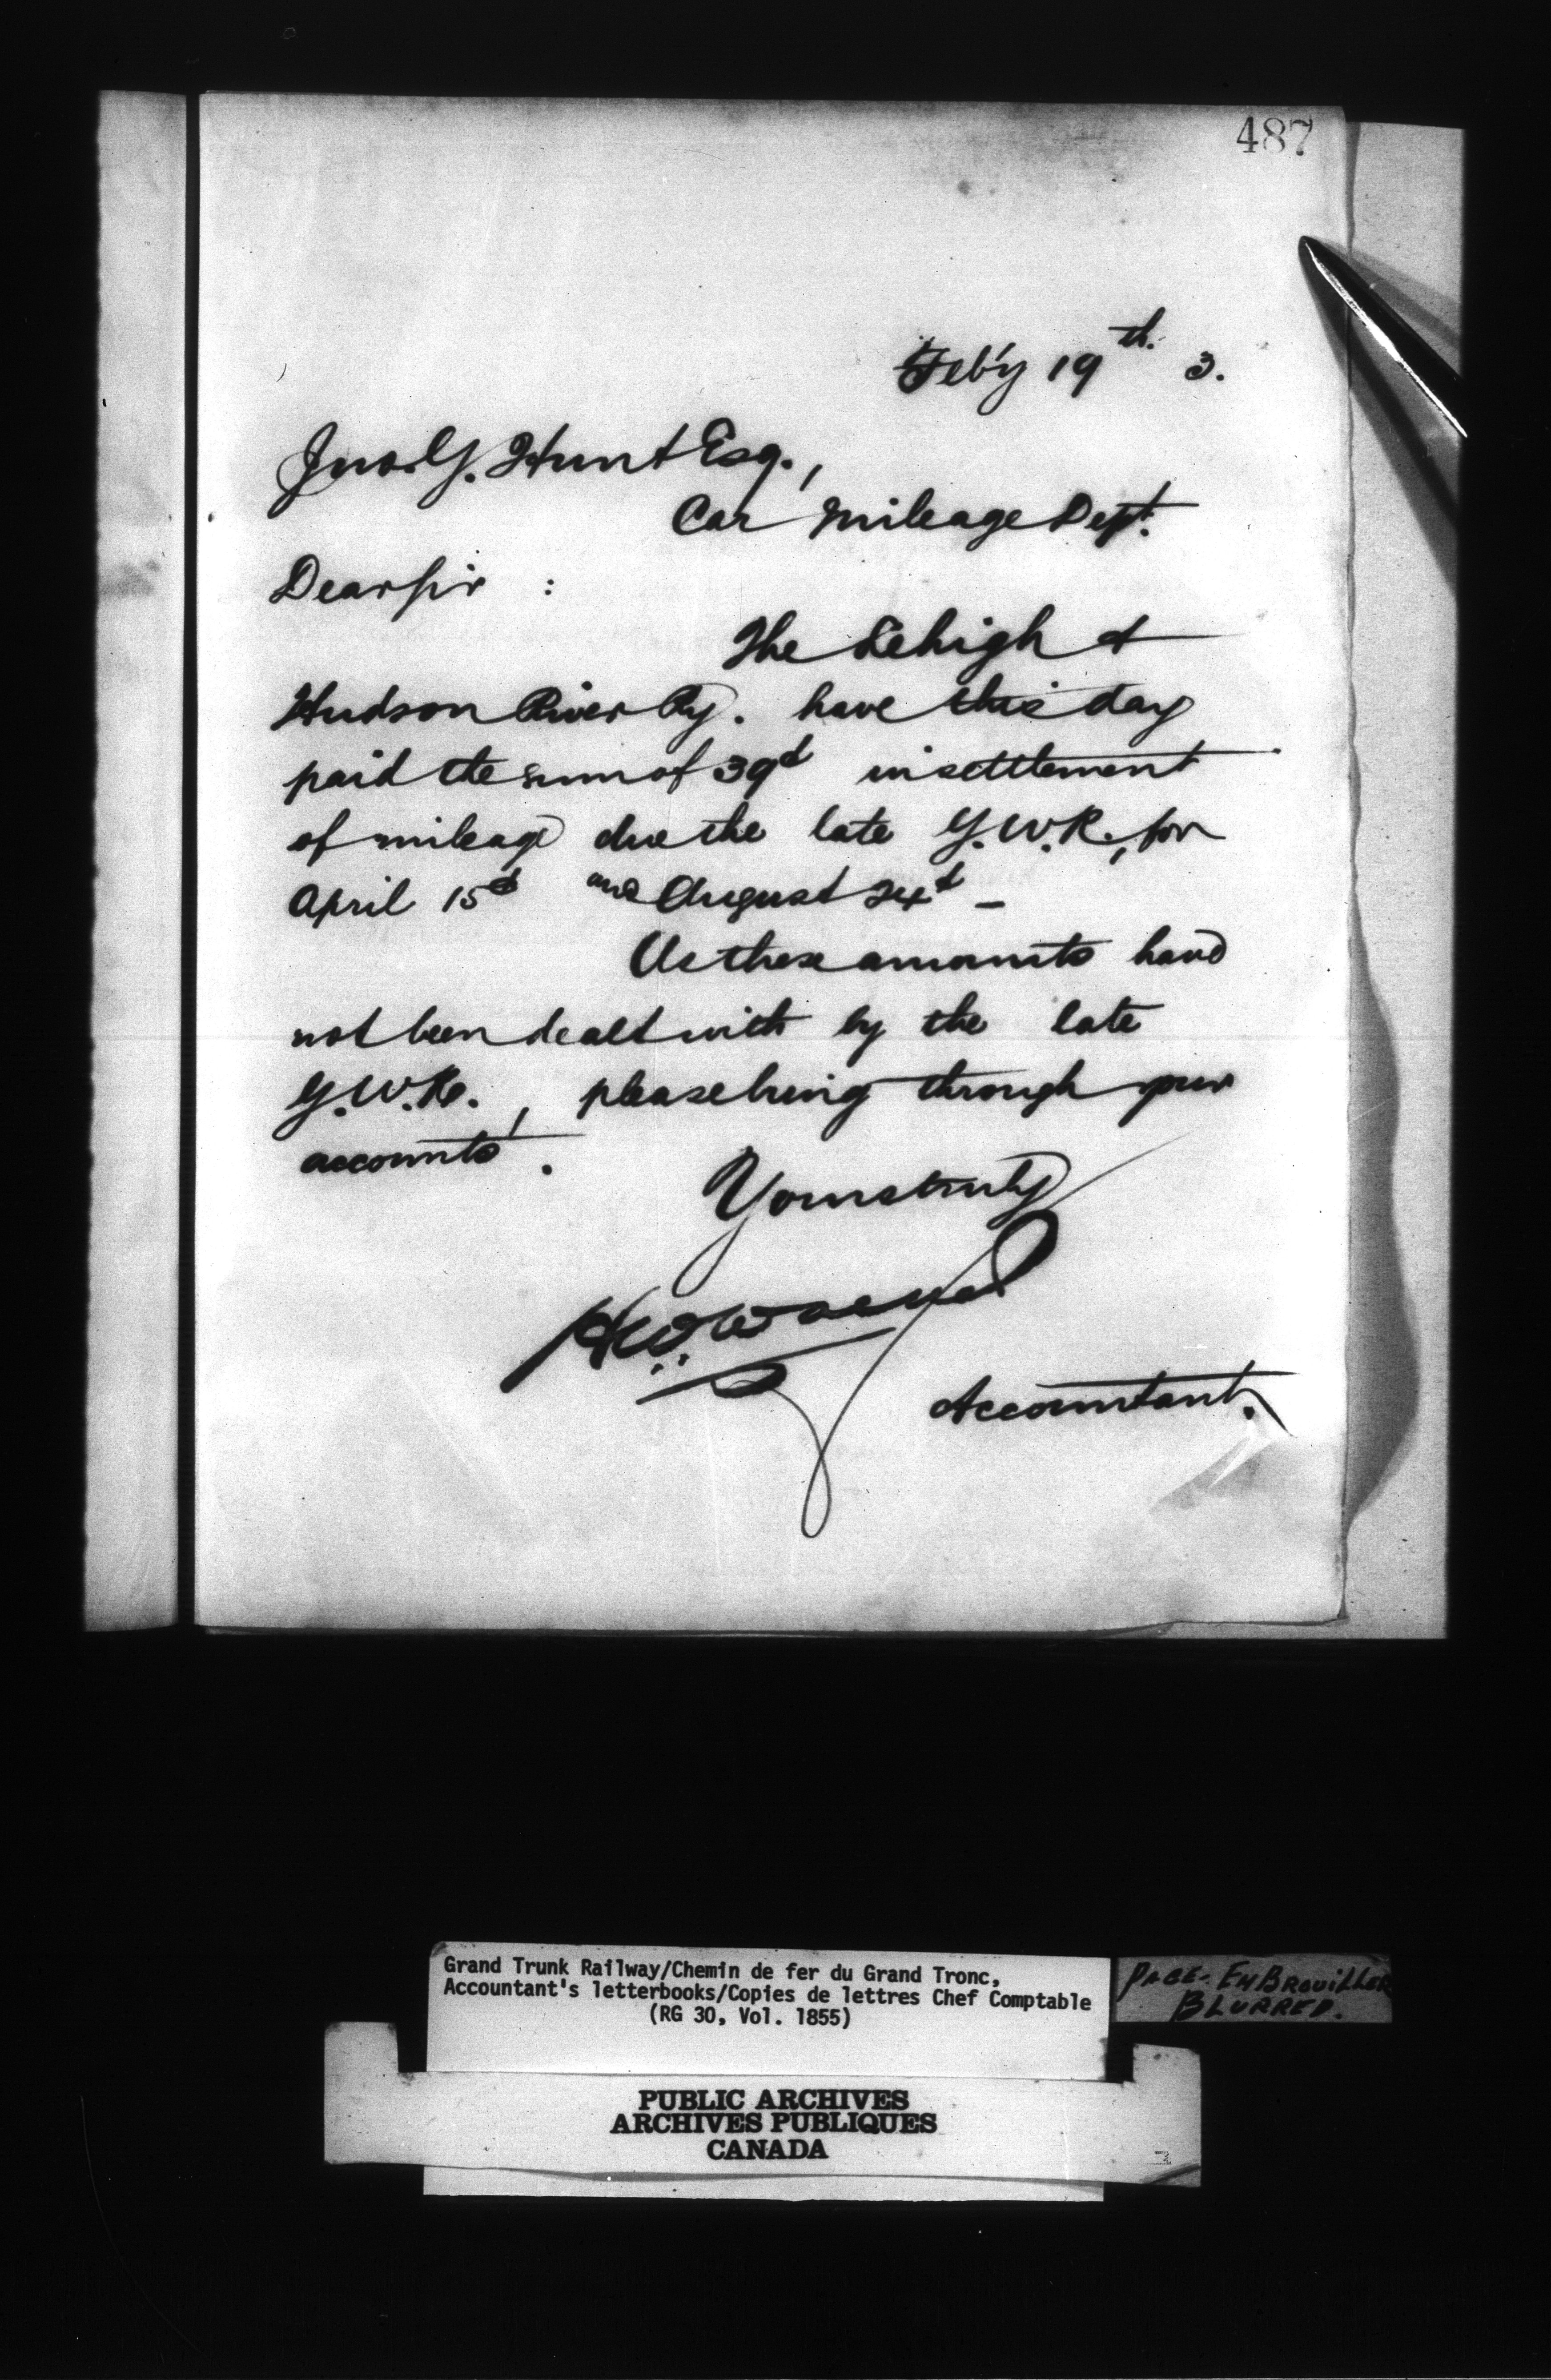 487
Feb'y 19th. 3.
Jno. G. Hunt Esq.,
Car Mileage Dept.
Dear Sir :
The Lehigh &
Hudson River Ry. have this day
paid the sum of 39¢ in settlement
of mileage due the late G.W.R., for
April 15¢ and August 24¢ —
As these amounts have
not been dealt with by the late
G.W.R., please bring through your
accounts.
Yours truly
Accountant.
Grand Trunk Railway/Chemin de fer du Grand Tronc,
Accountant's letterbooks/Copies de lettres Chef Comptable
(RG 30, Vol. 1855)
PAGE. EMBROUILLER
BLURRED.
PUBLIC ARCHIVES
ARCHIVES PUBLIQUES
CANADA